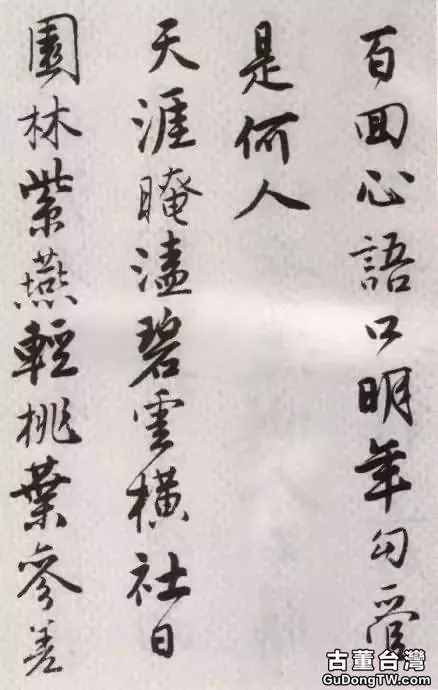 百回心語口明年勾管
是何人
天涯晻溘碧雲橫社日
園林紫燕輕桃葉參差
古董台灣
GuDongTW.com